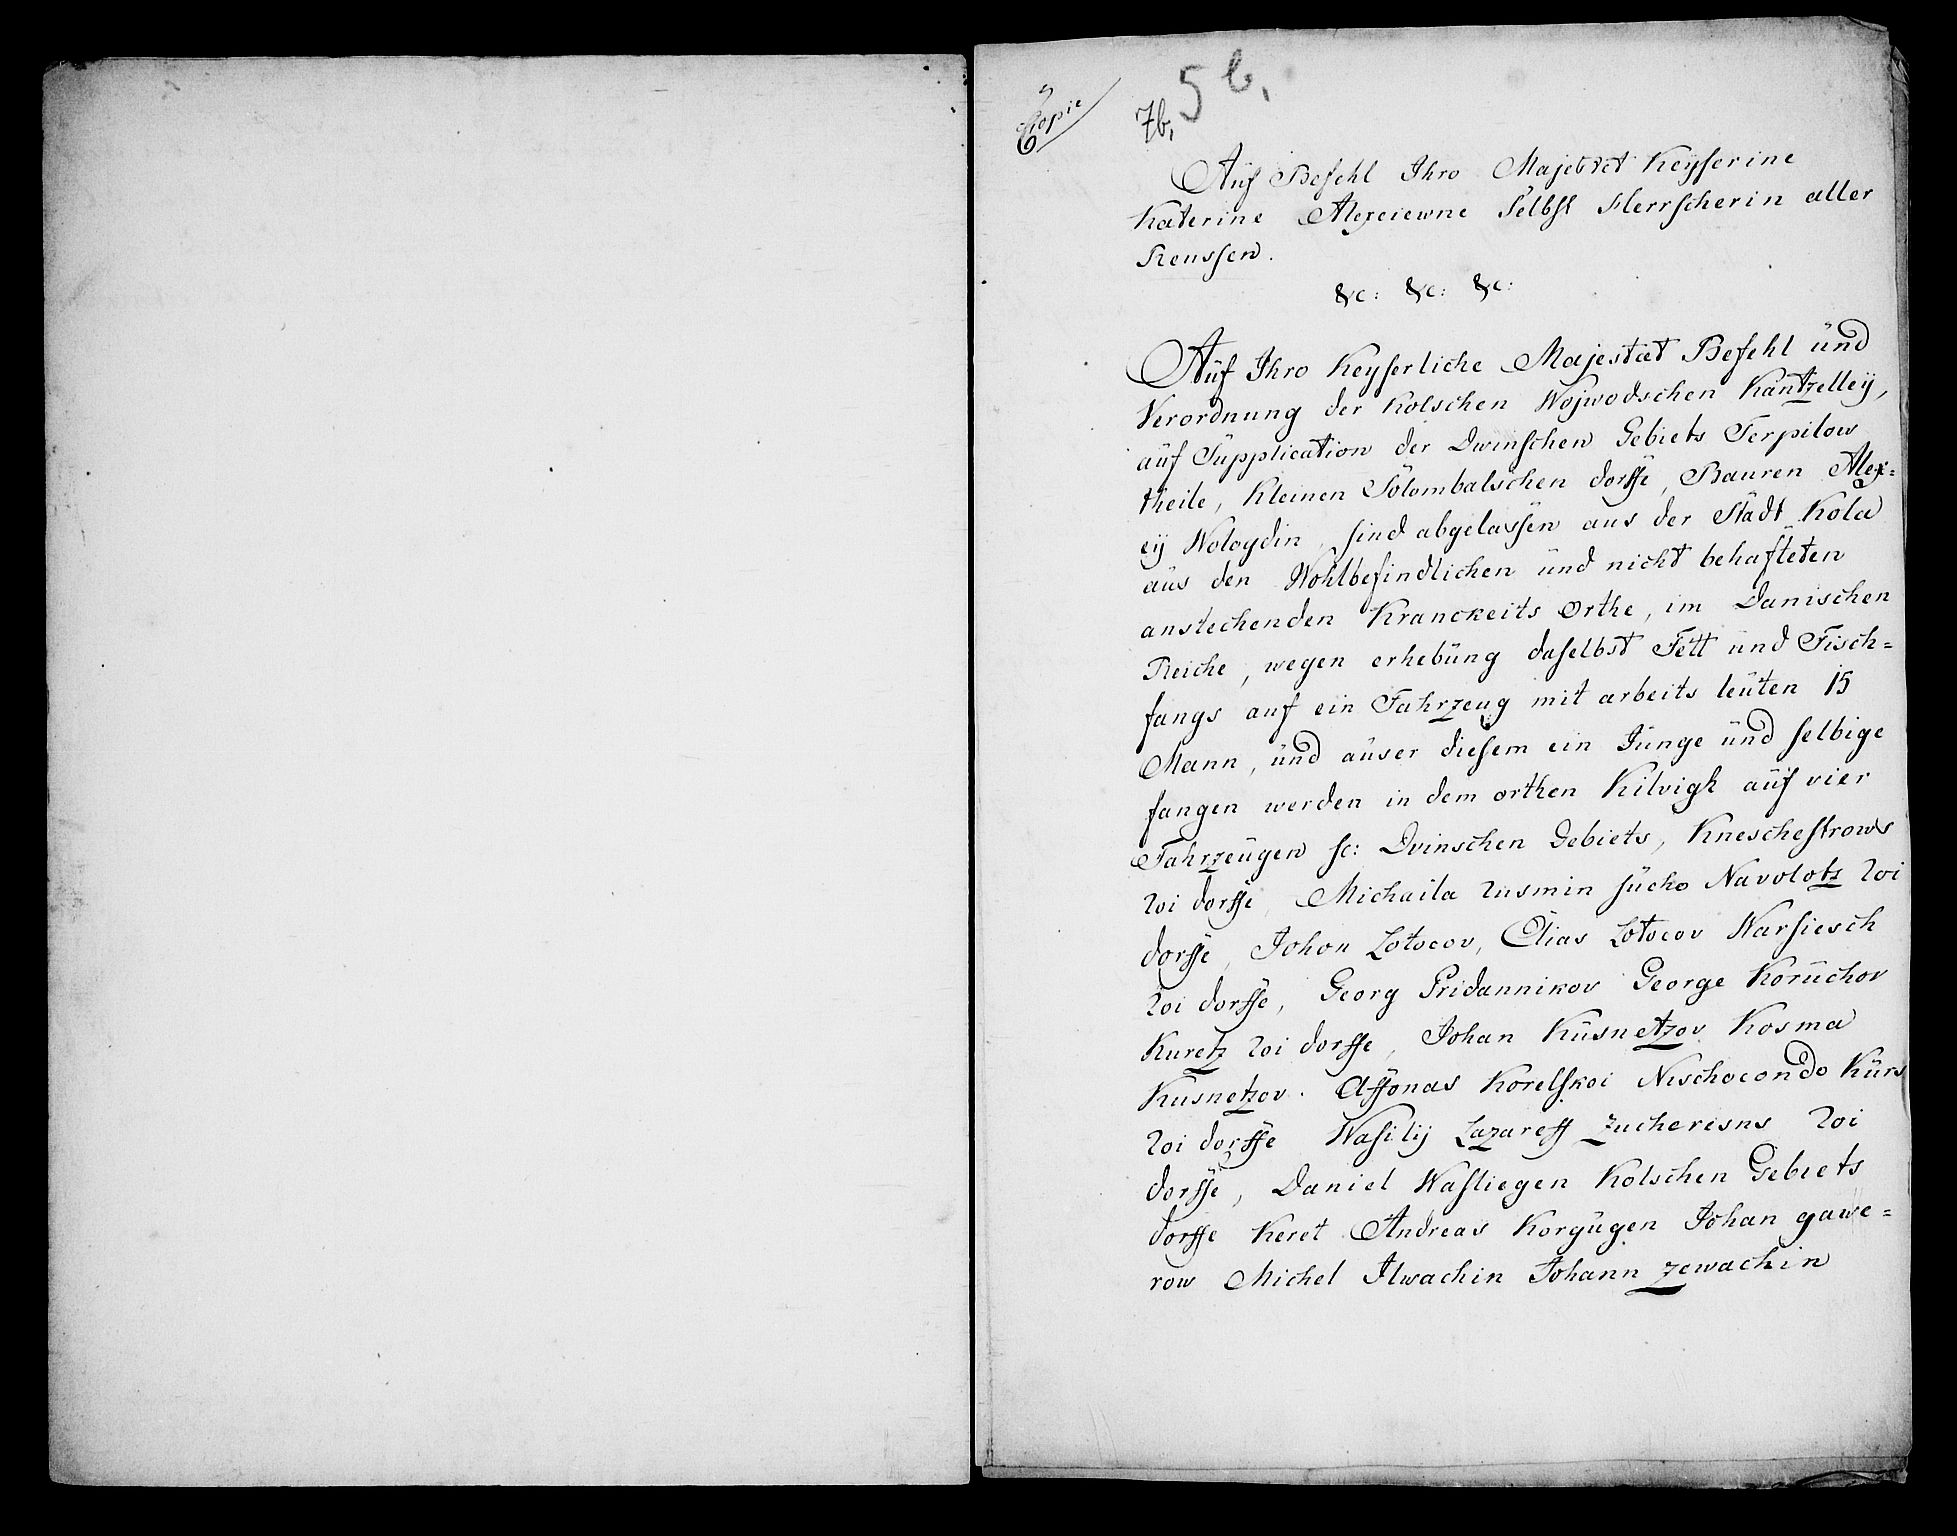 Copie
5 b,
7b,
Auf Befehl Ihro Majestet Keyserine
Katerine Alexeiewne Selbst Herrscherin aller
Reussen.
&c: &c: &c:
Aüf Ihro Keyserliche Majestæt Befehl ünd
Verordnung der Kolschen Wojwodschen Kantzelleÿ,
aüf Süpplication der Dwinschen Gebiets Terpilow
theile, Kleinen Solombalschen dorffe, Bauren Alex=
eÿ Wologdin, sind abgelassen aus der Stadt Kola
aüs den Wohlbefindlichen ünd nicht behafteten
anstechenden Kranckeits Orthe, im Danischen
Reiche, wegen erhebüng daselbst Fett ünd Fisch=
fangs auf ein Fahrzeug mit arbeits leüten 15
Mann, ünd aüser diesem ein Jünge ünd selbige
fangen werden in dem orthen Kilvigh aüf vier
Fahrzeügen sc: Dvinschen Gebiets, Kneschestrows
koi dorffe, Michaila Kusmin sücho Navolotz koi
dorffe, Johon Lotocov, Elias Lotocov Warsiesch
koi dorffe, Georg Pridannikov George Korüchov
Kuretz koi dorffe, Johan Küsnetzov Kosma
Küsnetzov. Affonas Korelskoi Nischocondo Kürs
koi dorffe Wasilÿ Lazareff Zucherisns koi
dorffe, Daniel Wasliegen Kolschen Gebiets
dorffe Keret Andreas Korgügen Johan gawe=
row Michel Ilwachin Johann Zewachin